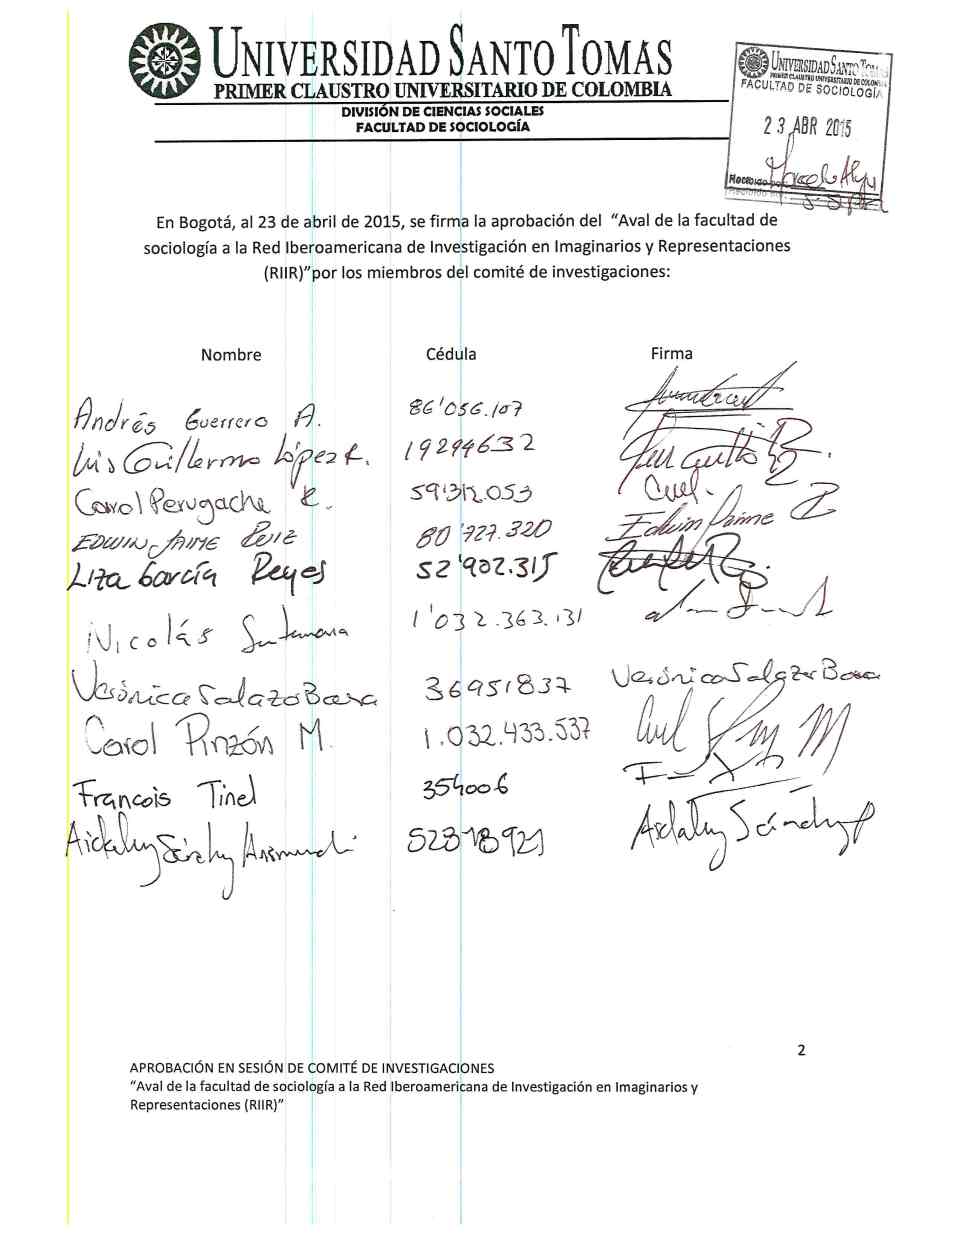 UNIVERSIDAD SANTO TOMAS
PRIMER CLAUSTRO UNIVERSITARIO DE COLOMBIA
DIVISIÓN DE CIENCIAS SOCIALES
FACULTAD DE SOCIOLOGÍA
UNIVERSIDAD SANTO
PRIMER CLAUSTRO UNIVERSITARIO DE COLOMBIA
FACULTAD DE SOCIOLOGÍA
23 ABR 2015
Recibido por
En Bogotá, al 23 de abril de 2015, se firma la aprobación del "Aval de la facultad de
sociología a la Red Iberoamericana de Investigación en Imaginarios y Representaciones
(RIIR)"por los miembros del comité de investigaciones:
Nombre Cédula Firma
Andrés Guerrero A. 86'056.107
Luis Guillermo López R. 19294632
Carol Perugache R. 59'312.053
EDWIN JAIME RUIZ 80'727.320 Edwin Jaime R
Liza García Reyes 52'902.315
Nicolás Santamaría 1'032.363.131
Verónica Salazar Baena 36951837 Verónica Salazar Baena
Carol Pinzón M. 1.032.433.537
François Tinel 354006
Aidaluz Sánchez 52818921 Aidaluz Sánchez
2
APROBACIÓN EN SESIÓN DE COMITÉ DE INVESTIGACIONES
"Aval de la facultad de sociología a la Red Iberoamericana de Investigación en Imaginarios y
Representaciones (RIIR)"